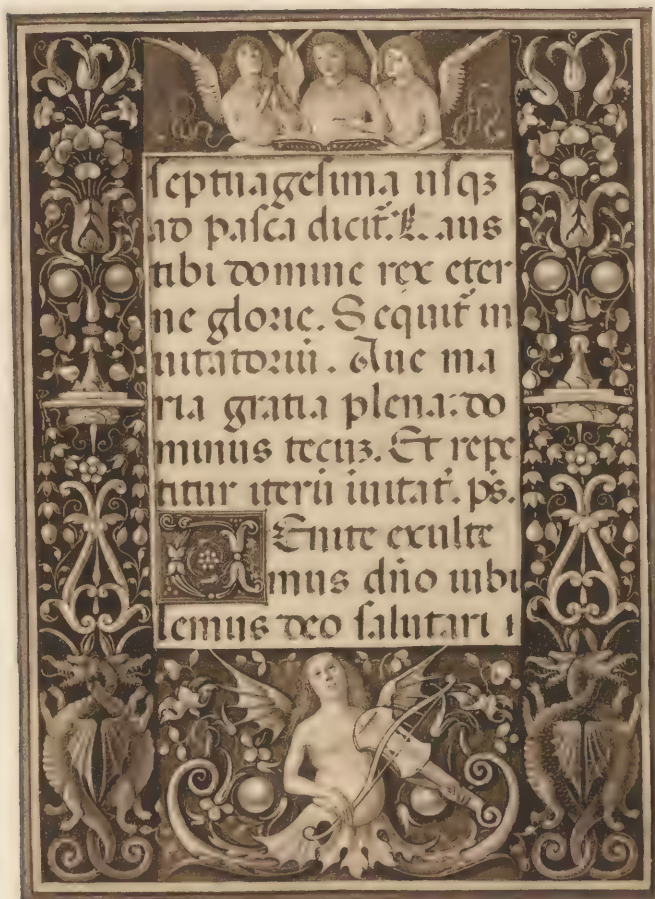 septuagesima usqꝫ
ad pasca dicit᷑. Laus
tibi domine rex eter
ne glorie. Sequit᷑ in
uitatoriū. Aue ma
ria gratia plena: do
minus tecuꝫ. Et repe
titur iterū īuitat᷑. p̄s.
Enite exulte
mus dn̄o iubi
lemus deo salutari